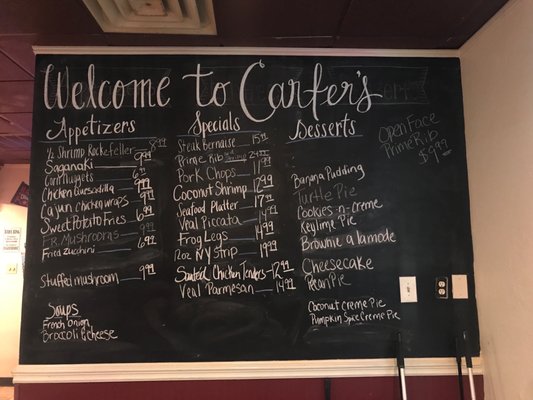 Welcome to Carfer's
Appetizers
1/2 Shrimp Rockefeller 8.99
Saganaki 9.99
Corn Nuggets 6.99
Chicken Quesadilla 9.99
Cajun chicken wraps 9.99
Sweet Potato Fries 6.99
FR. Mushrooms 6.99
Fried Zucchini 6.99
Stuffed mushroom 9.99
Soups
French Onion
Broccoli & cheese
Specials
Steak bernaise 15.99
Prime Rib Shrimp 24.99
Pork Chops 11.99
Coconut Shrimp 17.99
Seafood Platter 17.99
Veal Piccata 14.99
Frog Legs 14.99
12oz NY Strip 19.99
Sauteed Chicken Tenders 12.99
Veal Parmesan 14.99
Desserts
Banana Pudding
Turtle Pie
Cookies-n-creme
Keylime Pie
Brownie a lamode
Cheesecake
Pecan Pie
Coconut creme Pie
Pumpkin Spice Creme Pie
Open Face
Prime Rib
$9.99